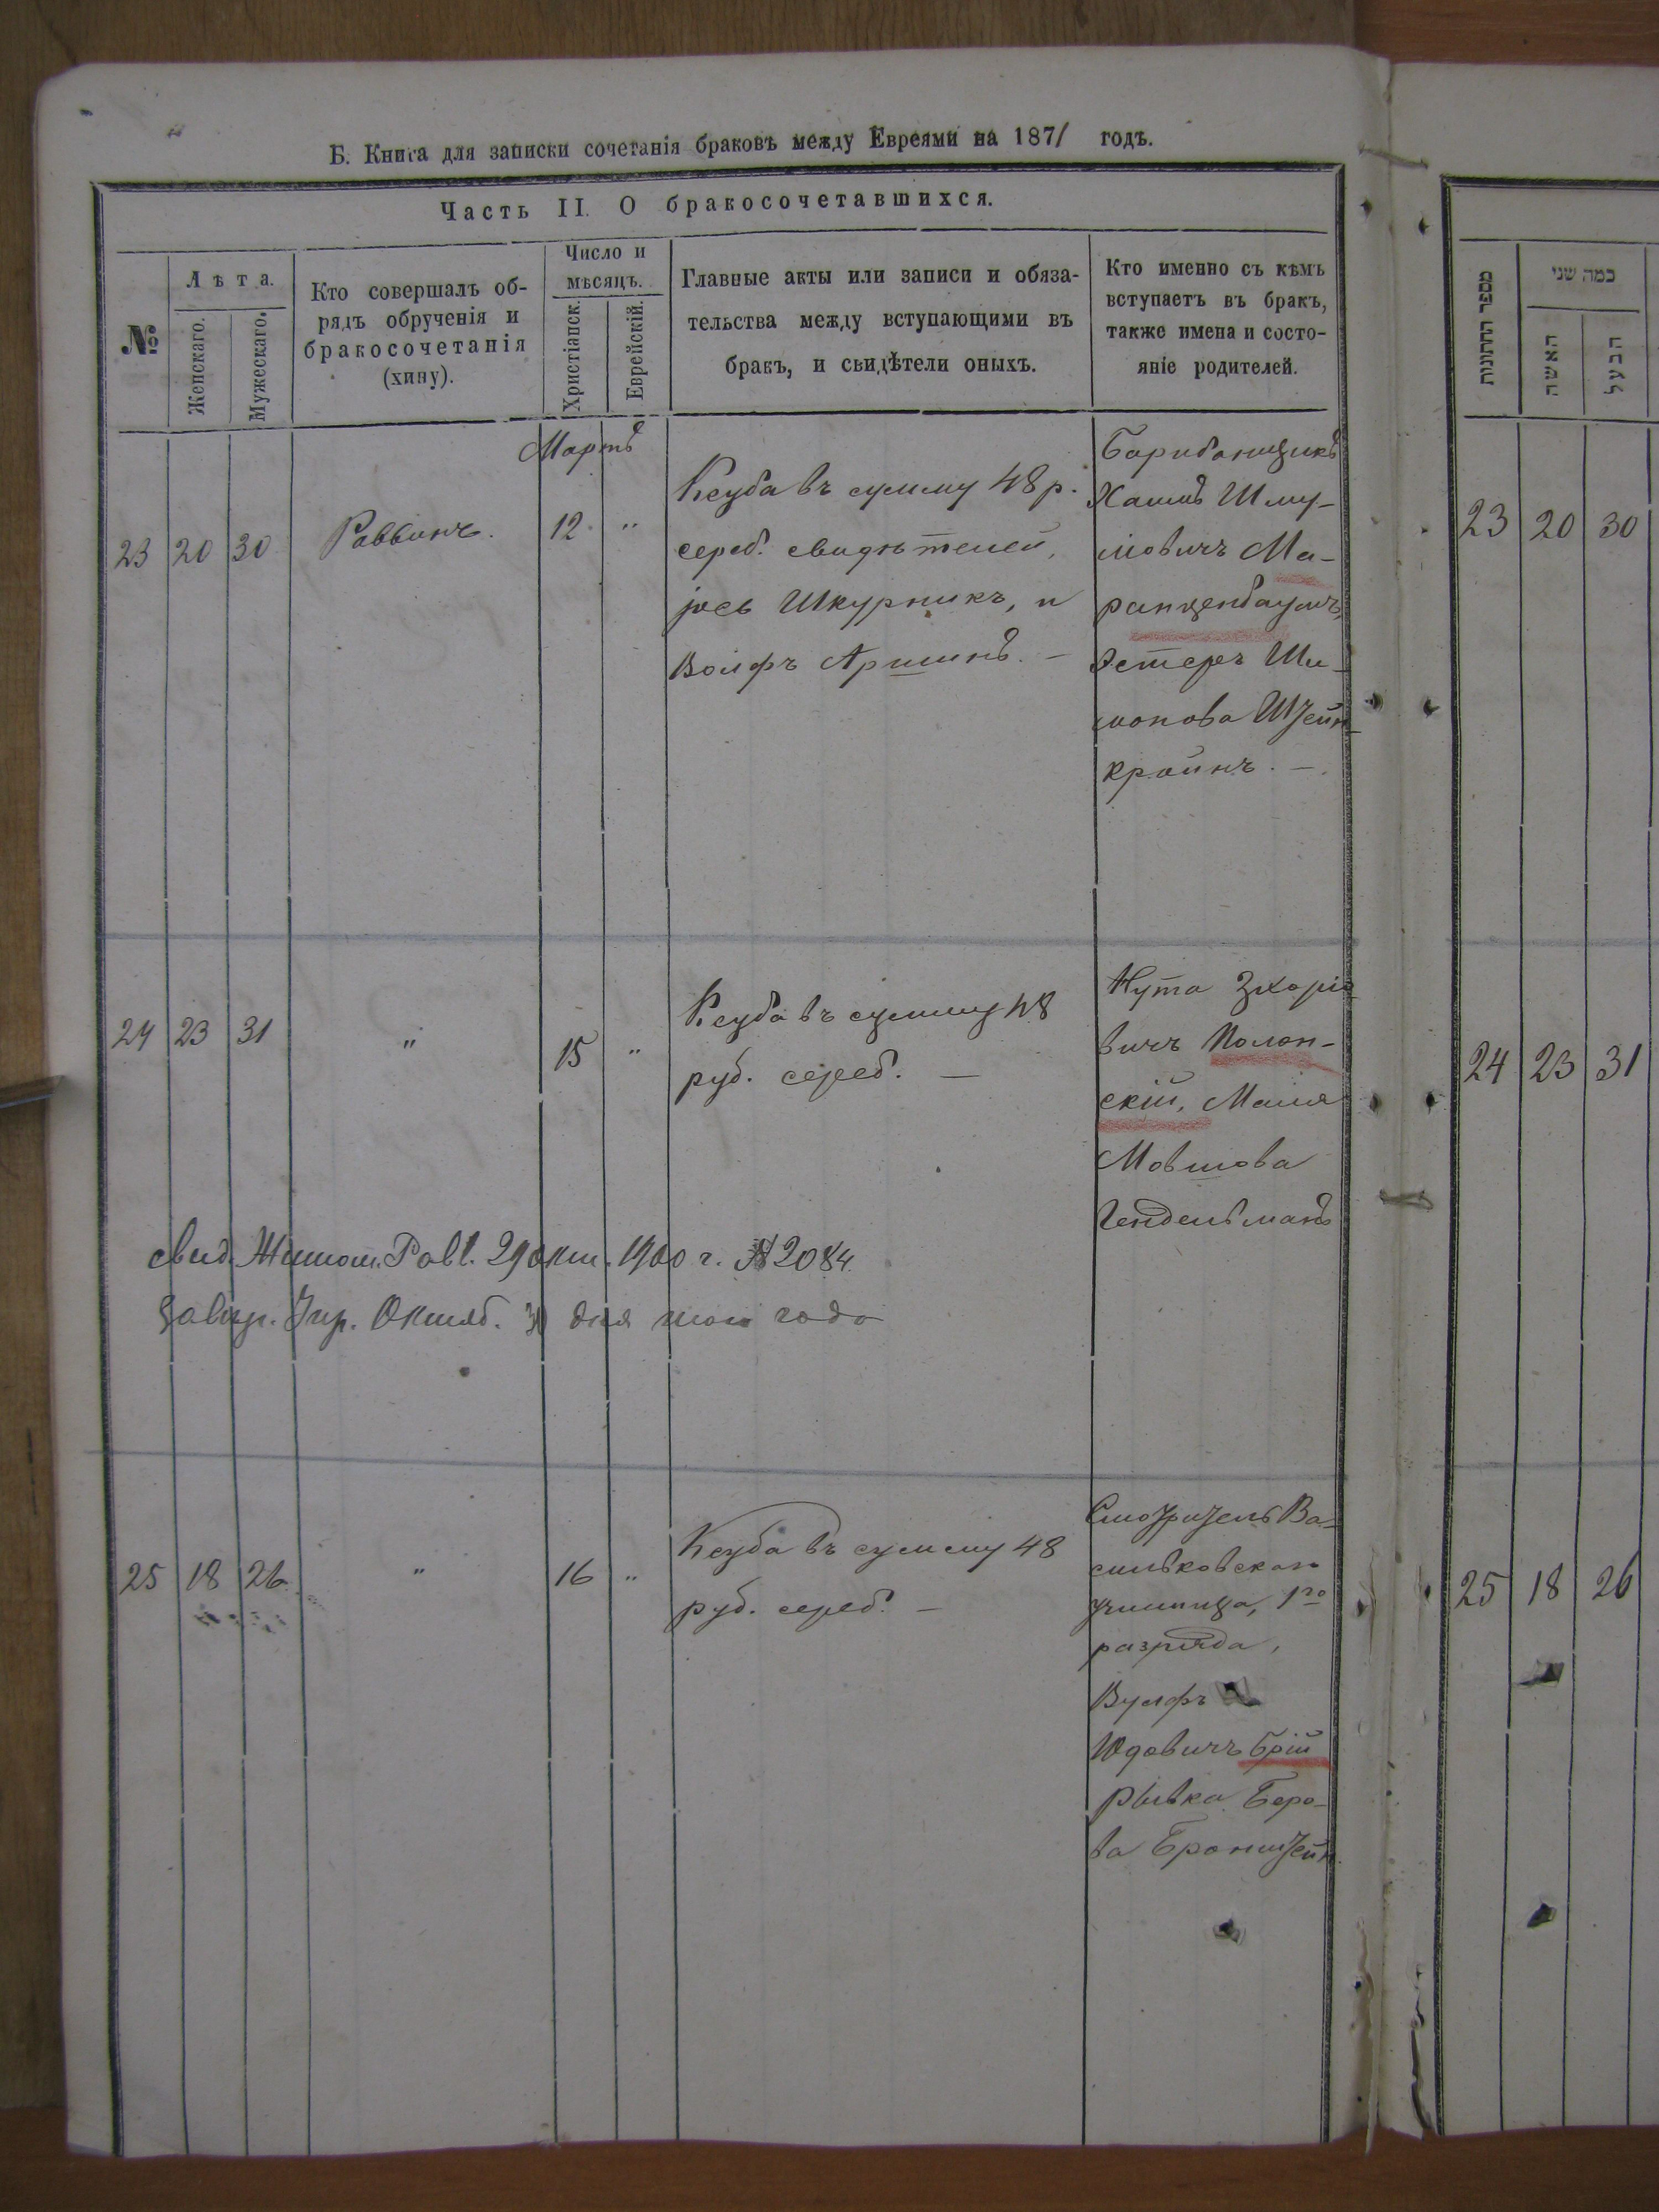 Б. Книга для записки сочетанія браковъ между Евреями на 1871 годъ.
Часть II. О бракосочетавшихся.
№
Лѣта.
Женскаго.
Мужескаго.
Кто совершалъ об-
рядъ обрученія и
бракосочетанія
(хипу).
Число и
мѣсяцъ.
Христіанск.
Еврейскій.
Главные акты или записи и обяза-
тельства между вступающими въ
бракъ, и свидѣтели оныхъ.
Кто именно съ кѣмъ
вступаетъ въ бракъ,
также имена и состо-
яніе родителей.
Мартъ
23 20 30 Раввинъ. 12 "
Ксуба въ сумму 48 р.
сереб. свидѣтелей,
Іось Шкурникъ, и
Волфъ Аршинъ. —
Барабанщикъ
Хаимъ Шму-
ловичъ Ма-
ранценбаумъ,
Эстеръ Ши-
монова Штейн-
крайнъ. —
24 23 31 " 15 "
Ксуба въ сумму 48
руб. сереб. —
Нута Зхаріо
вичъ Полон-
скій, Маля
Мовшова
Гендельманъ
свид. Житом. Равв. 29 окт. 1900 г. № 2084
Октяб. 30 дня того года
25 18 26 " 16 "
Ксуба въ сумму 48
руб. сереб. —
Смотритель Ва-
сильковскаго
училища, 1го
разряда,
Вульфъ
Юдовичъ Брій
Рывка Беро-
ва Бронштейн
מספר החתונות
כמה שני
האשה
הבעל
23 20 30
24 23 31
25 18 26